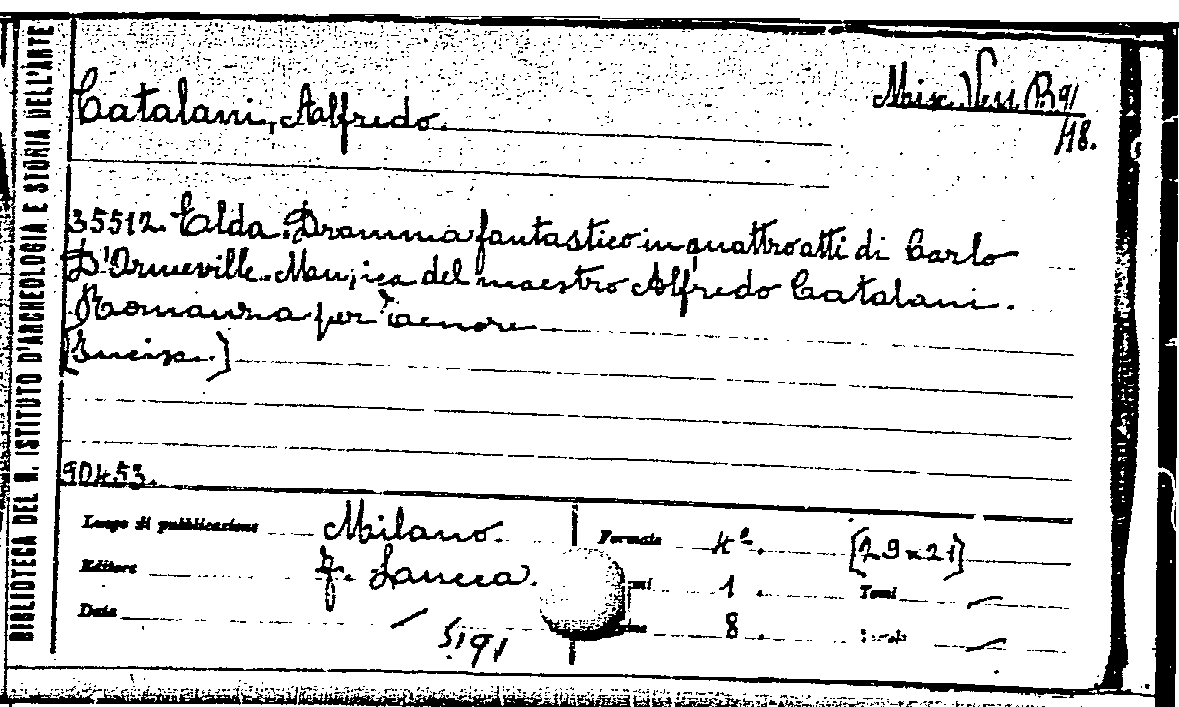 BIBLIOTECA DEL R. ISTITUTO D'ARCHEOLOGIA E STORIA DELL'ARTE
Catalani, Alfredo.
Misc. Vess. B 91
/18.
35512. Elda. Dramma fantastico in quattro atti di Carlo
D'Ormeville. Musica del maestro Alfredo Catalani.
Romanza per tenore
[Incisa.]
90453.
Luogo di pubblicazione Milano. Formato 4º. [29x21]
Editore F. Lucca. 1. Tomi —
Data — 8.
5191